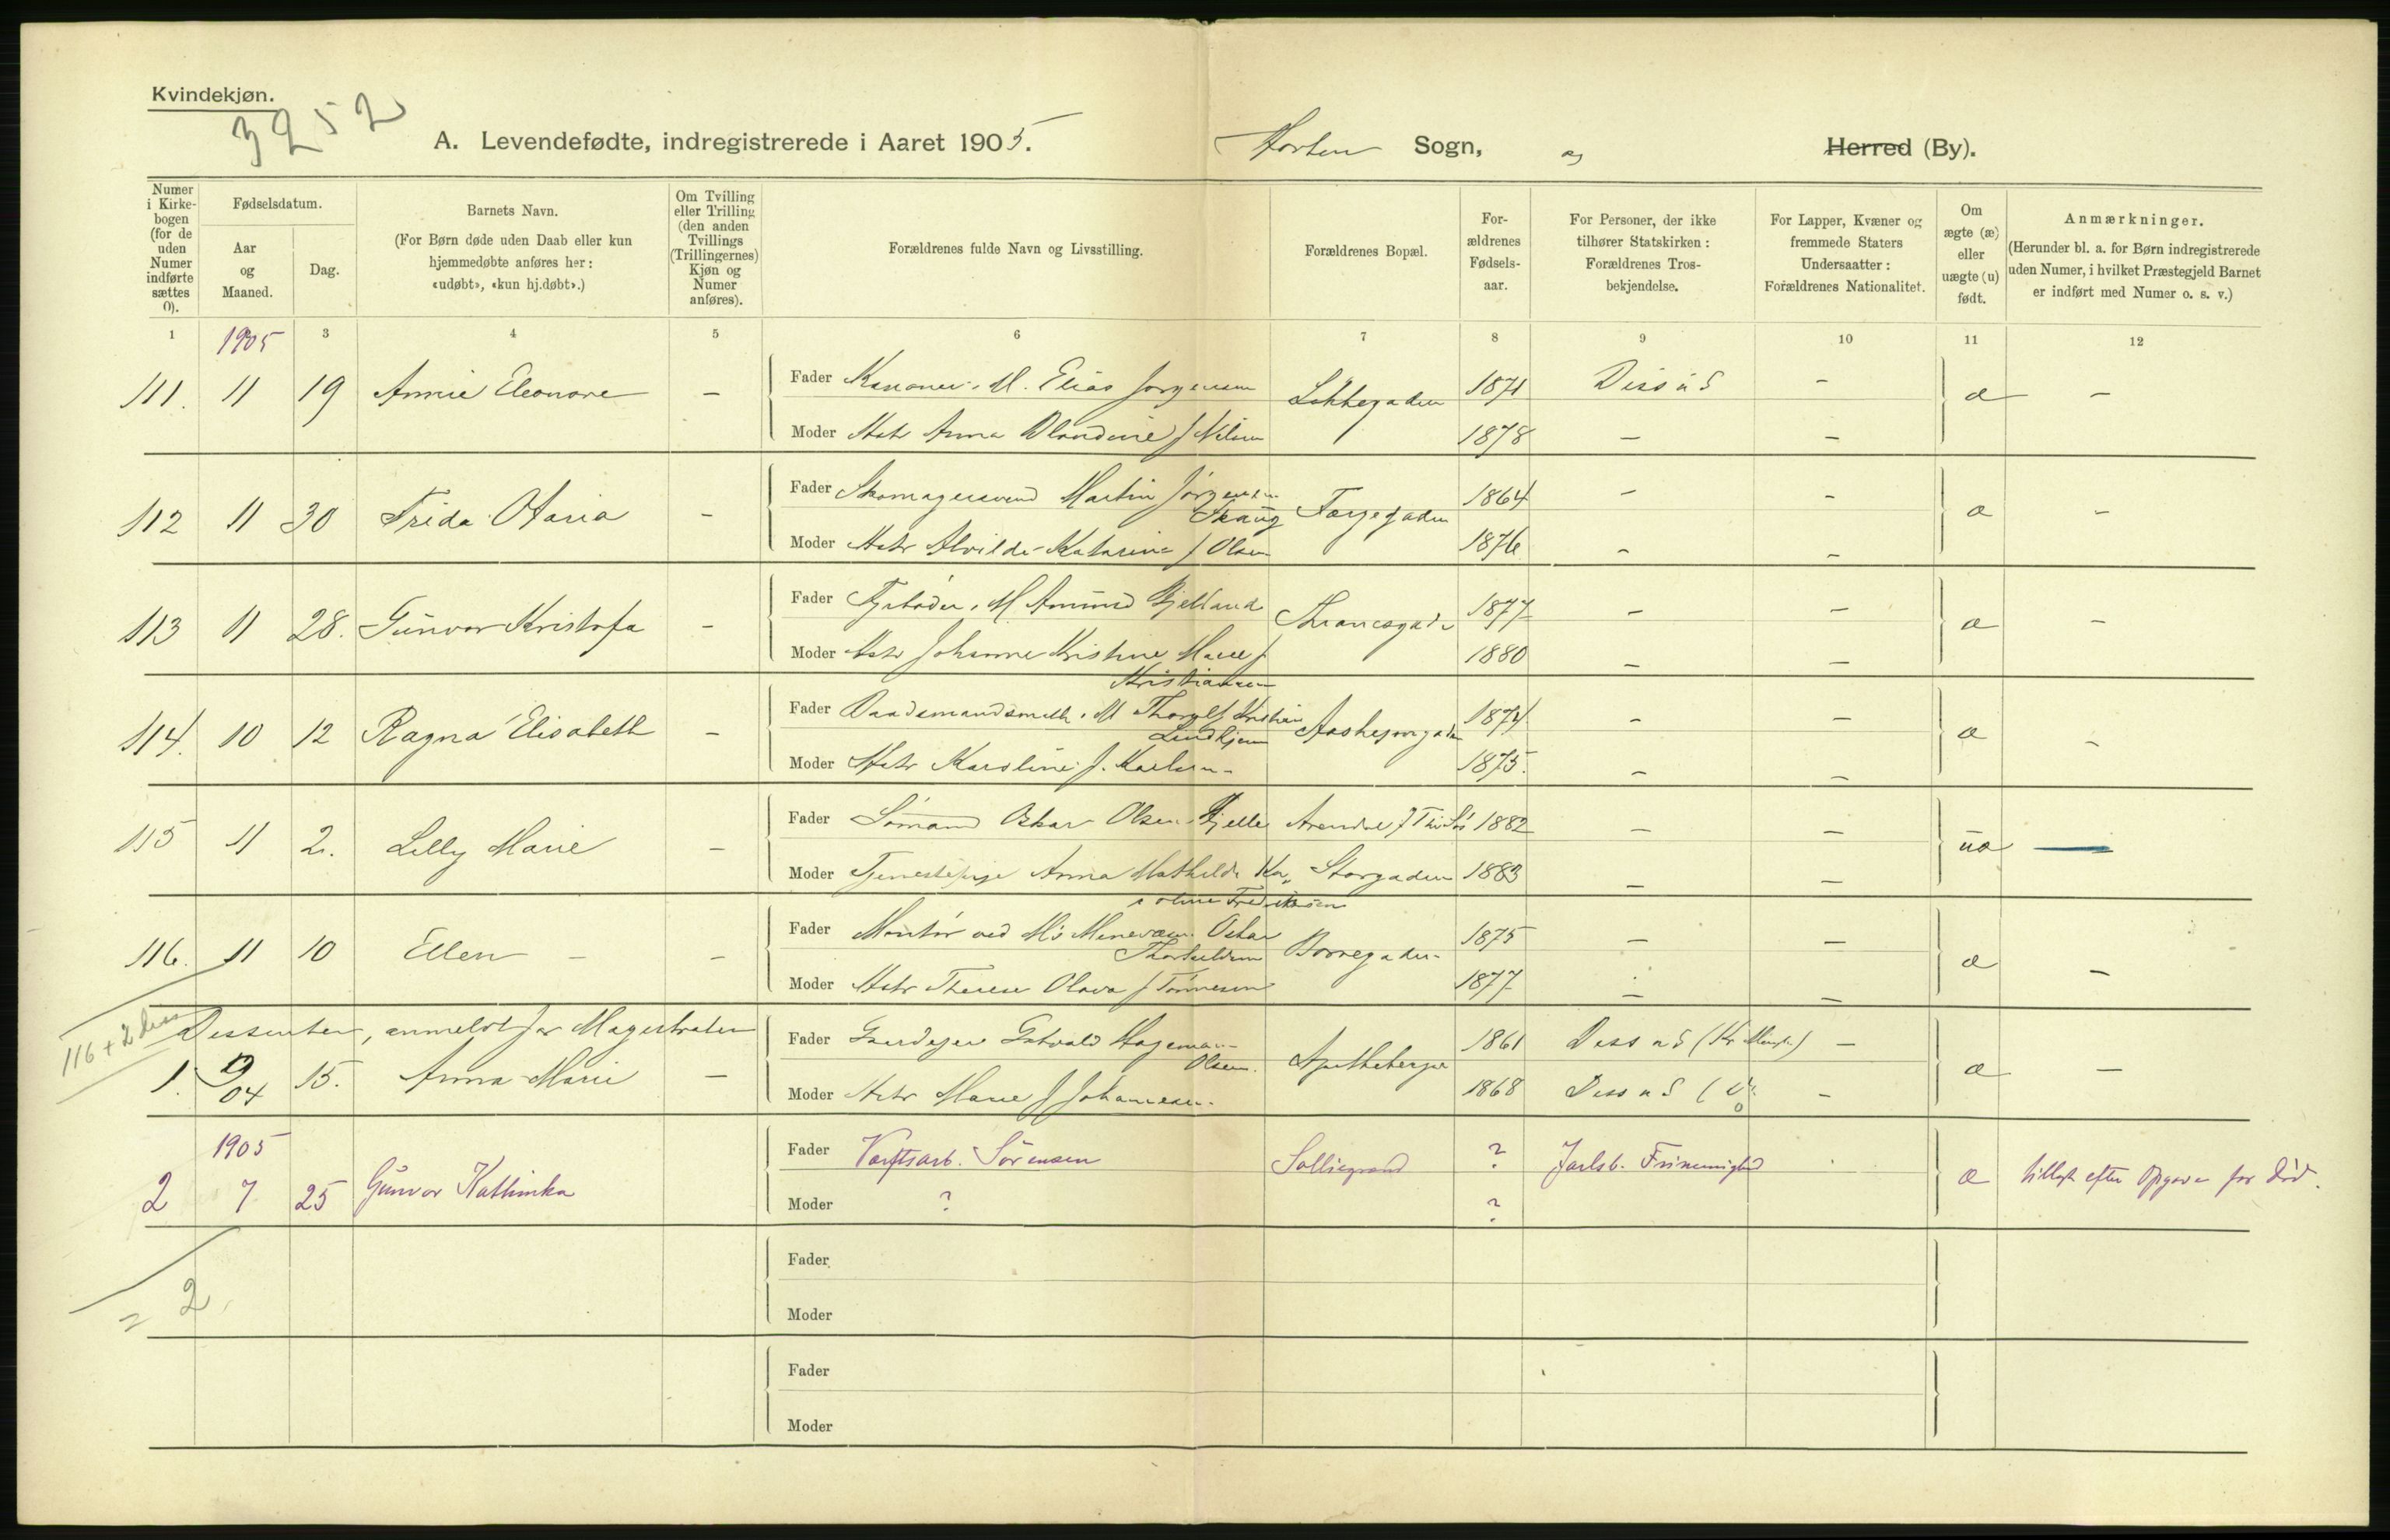 Kvindekjøn.
3252
A. Levendefødte, indregistrerede i Aaret 1905.
Horten Sogn, og Herred (By).
Numer i Kirkebogen (for de uden Numer indførte sættes 0).
Fødselsdatum.
Aar og Maaned.
Dag.
Barnets Navn.
(For Børn døde uden Daab eller kun hjemmedøbte anføres her: «udøbt», «kun hj.døbt».)
Om Tvilling eller Trilling (den anden Tvillings (Trillingernes) Kjøn og Numer anføres).
Forældrenes fulde Navn og Livsstilling.
Forældrenes Bopæl.
Forældrenes Fødselsaar.
For Personer, der ikke tilhører Statskirken: Forældrenes Trosbekjendelse.
For Lapper, Kvæner og fremmede Staters Undersaatter: Forældrenes Nationalitet.
Om ægte (æ) eller uægte (u) født.
Anmærkninger.
(Herunder bl. a. for Børn indregistrerede uden Numer, i hvilket Præstegjeld Barnet er indført med Numer o. s. v.)
1 1905 3 4 5 6 7 8 9 10 11 12
111. 11 19 Annie Eleonore - Fader Kanoner. M. Elias Jørgensen Løkkegaden 1871 Diss - æ -
Moder Hstr Anna Blandine f Nilsen 1878 - -
112 11 30 Frida Maria - Fader Skomagersvend Martin Jörgensen Skaug Færgegaden 1864 - - æ -
Moder Hstr Alvilde Katarina f Olsen 1876 - -
113 11 28. Gunvor Kristofa - Fader Fyrbøder. M Amund Bjelland Thranesgade 1877 - - æ -
Moder Hstr Johanne Kristine Marie f Kristiansen 1880 - -
114. 10 12 Ragna Elisabeth - Fader M Thorolf Kristian Lindhjem 1874 - - æ -
Moder Hstr Karoline f. Karlsen 1875. - -
115 11 2. Lilly Marie - Fader Sömand Oskar Olsen Arendal 1882 - - uæ -
Moder Tjenestepige Anna Mathilde Karoline Fredriksen Storgaden 1883 - -
116. 11 10 Ellen - - Fader Montör ved Ms Minevæsen Oskar Thorkildsen Borregaden 1875 - - æ -
Moder Hstr Therese Olava f Tönnesen 1877 - -
116 + 2 diss
Dissenter, anmeldt for Magistraten
1. 9/04 15. Anna Marie - Fader Gaardejer Hageman Olsen. 1861 Diss - æ -
Moder Hstr Marie f Johannesen. 1868 Diss -
1905
2 7 25 Gunvor Kathinka Fader Værftsarb. Sörensen ? Jarlsb. Frimenighed æ tillagt efter Opgave for død.
Moder ? ?
= 2.
Fader
Moder
Fader
Moder